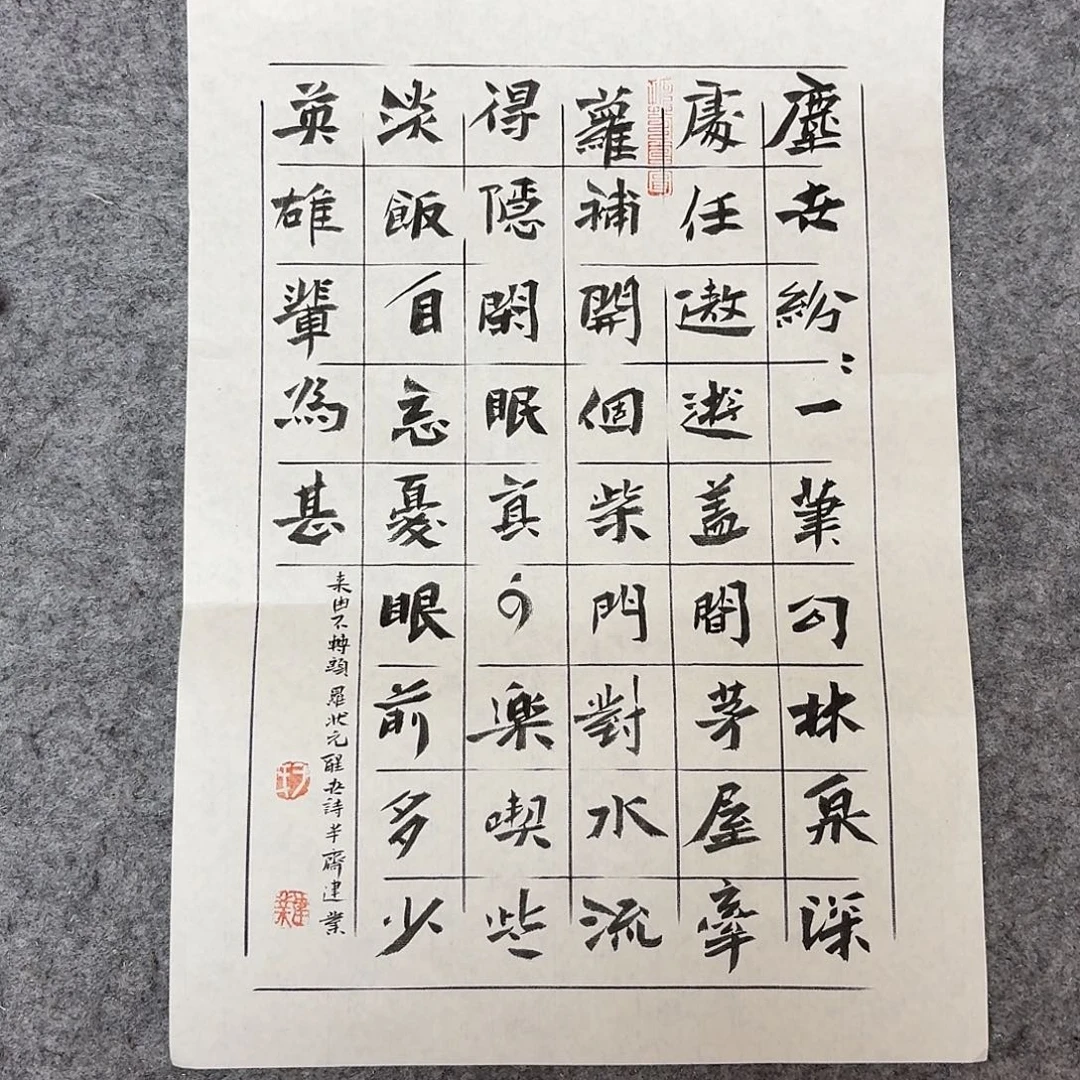 塵世紛〻一筆勾林泉深
處任遨遊蓋間茅屋牽
蘿補開個柴門對水流
得隱閑眠真可樂喫些
淡飯自忘憂眼前多少
英雄輩為甚
来由不轉頭 羅狀元醒世詩半齋建業